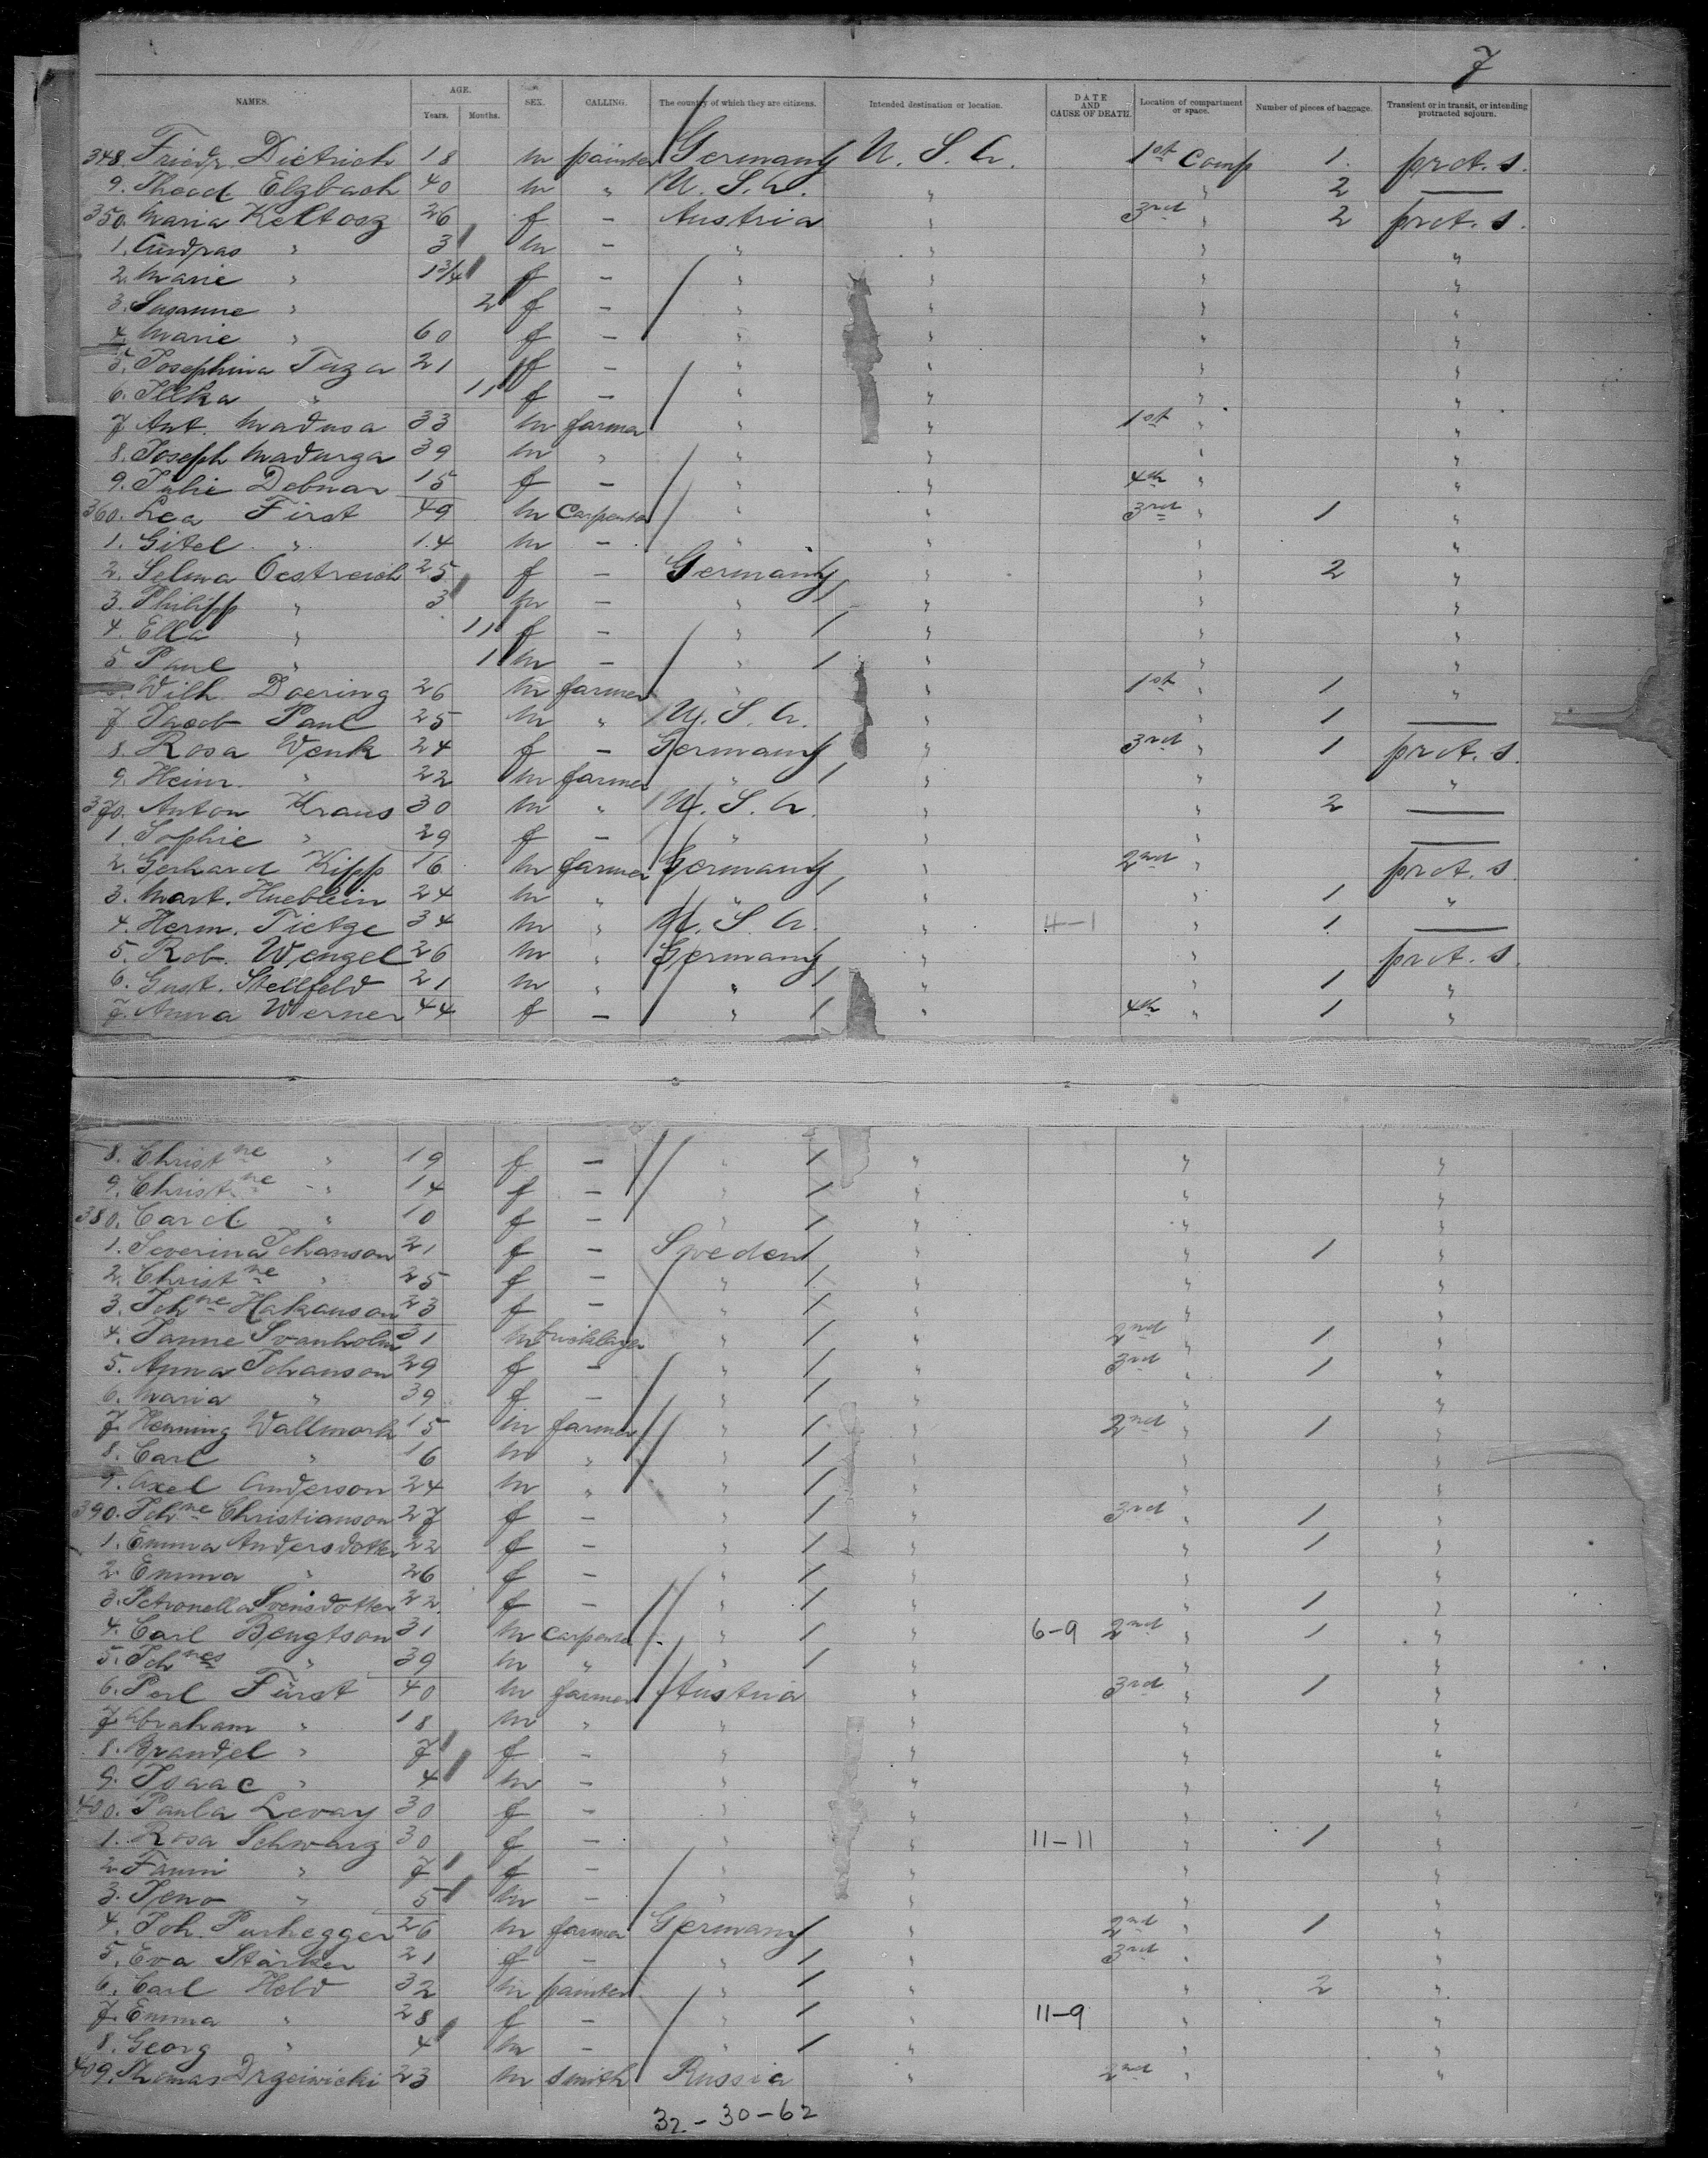 7
NAMES. AGE. Years. Months. SEX. CALLING. The country of which they are citizens. Intended destination or location. DATE AND CAUSE OF DEATH. Location of compartment or space. Number of pieces of baggage. Transient or in transit, or intending protracted sojourn.
348. Friedr. Dietrich 18 m painter Germany U. S. A. 1st Comp 1. prot. s.
9. Theod Elzbach 40 m " U. S. A. " " 2 —
350. Maria Keltosz 26 f — Austria " 3rd " 2 prot. s.
1. Andras " 3 m — " " " "
2. Marie " 1 3/4 f — " " " "
3. Susanne " 2 f — " " " "
4. Marie " 60 f — " " " "
5. Josephina Tuza 21 f — " " " "
6. Ilka " 11 f — " " " "
7 Ant. Madusa 33 m farmer " " 1st " "
8. Joseph Madurga 39 m " " " " "
9. Julie Debnar 15 f — " " 4th " "
360. Lea Fürst 49 m Carpenter " " 3rd " 1 "
1. Gitel " 14 m — " " " "
2. Selma Oestreich 25 f — Germany " " 2 "
3. Philipp " 3 m — " " " "
4. Ella " 11 f — " " " "
5 Paul " 1 m — " " " "
Wilh. Doering 26 m farmer " " 1st " 1 "
7 Jacob Paul 25 m " U. S. A. " " 1 —
8. Rosa Wenk 24 f — Germany " 3rd " 1 prot. s.
9. Heinr. " 22 m farmer " " " "
370. Anton Kraus 30 m " U. S. A. " " 2 —
1. Sophie " 29 f — " " " —
2. Gerhard Kipp 16 m farmer Germany " 2nd " prot. s.
3. Mart. Hueblein 24 m " " " " 1 "
4. Herm. Tietze 34 m " U. S. A. " 4-1 " 1 —
5. Rob. Wenzel 26 m " Germany " " prot. s.
6. Gust. Stellfeld 21 m " " " " 1 "
7. Anna Werner 44 f — " " 4th " 1 "
8. Christne " 19 f — " " " "
9. Christne " 14 f — " " " "
380. Carol " 10 f — " " " "
1. Severina Johanson 21 f — Sweden " " 1 "
2. Christne " 25 f — " " " "
3. Johne Hakanson 23 f — " " " "
4. Janne Svanholm 31 m bricklayer " " 2nd " 1 "
5. Anna Johanson 29 f — " " 3rd " 1 "
6. Maria " 39 f — " " " "
7. Henning Wallmark 15 m farmer " " 2nd " 1 "
8. Carl " 16 m " " " " "
9. Axel Anderson 24 m " " " " "
390. Johne Christianson 27 f — " " 3rd " 1 "
1. Emma Andersdotter 22 f — " " " 1 "
2. Emma " 26 f — " " " "
3. Petronella Svensdotter 22 f — " " " 1 "
4. Carl Bengtson 31 m carpenter " " 6-9 2nd " 1 "
5. Johnes " 39 m " " " " "
6. Perl Fürst 40 m farmer Austria " 3rd " 1 "
7. Abraham " 18 m " " " " "
8. Brandel " 7 f — " " " "
9. Isaac " 4 m — " " " "
400. Paula Levay 30 f — " " " "
1. Rosa Schwarz 30 f — " " 11-11 " 1 "
2. Fanni " 7 f — " " " "
3. Jeno " 5 m — " " " "
4. Joh. Purhegger 26 m farmer Germany " 2nd " 1 "
5. Eva Stärker 21 f — " " 3rd " "
6. Carl Held 32 m painter " " " 2 "
7. Emma " 28 f — " " 11-9 " "
8. Georg " 4 m — " " " "
409. Thomas Drzeiwicki 23 m smith Russia " 2nd " "
32-30-62